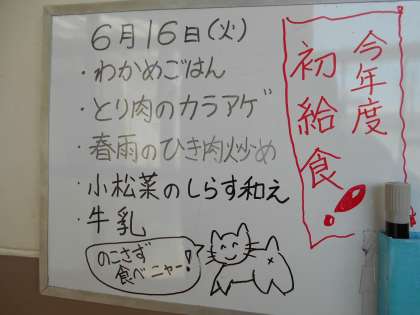 6月16日(火)
・わかめごはん
・とり肉のカラアゲ
・春雨のひき肉炒め
・小松菜のしらす和え
・牛乳
のこさず
食べニャー!
今年度
初給食!